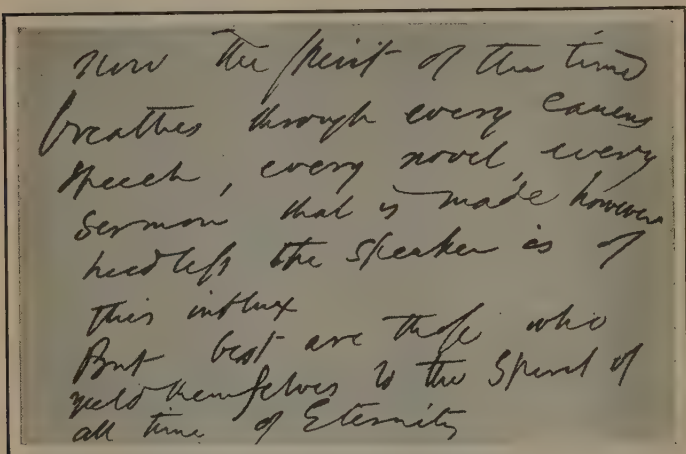 now the spirit of the time
breathes through every caucus
speech, every novel, every
sermon that is made however
heedless the speaker is of
this influx
But best are those who
yield themselves to the spirit of
all time of Eternity